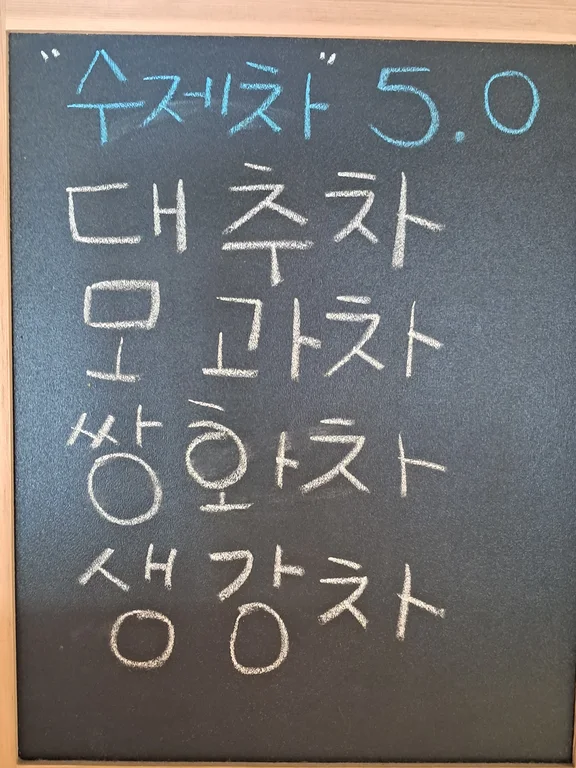 "수제차" 5.0
대추차
모과차
쌍화차
생강차